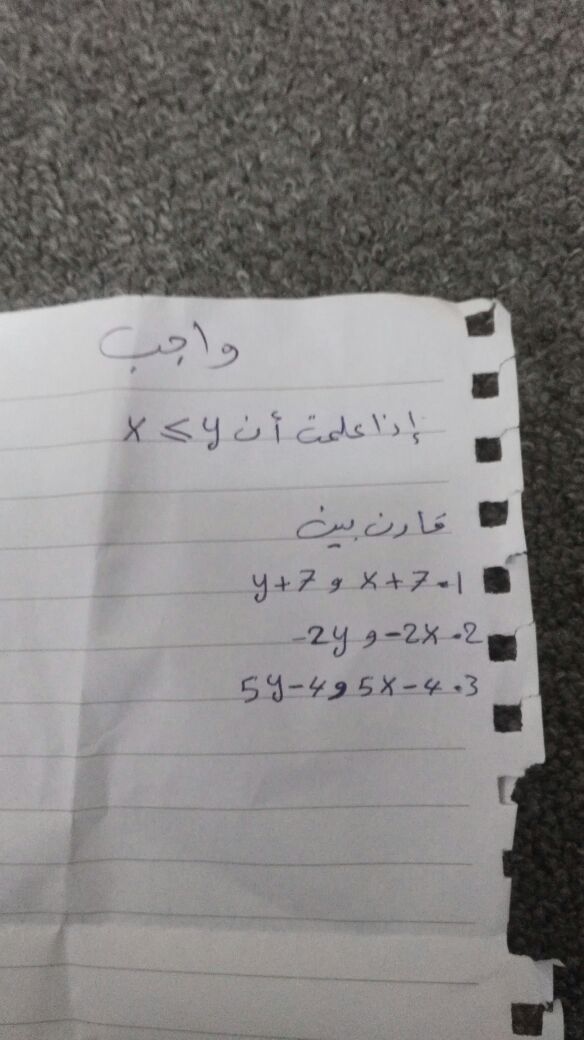 واجب
إذا علمت أن x ⩽ y
قارن بين
1. x+7 و y+7
2. -2x و -2y
3. 5x-4 و 5y-4